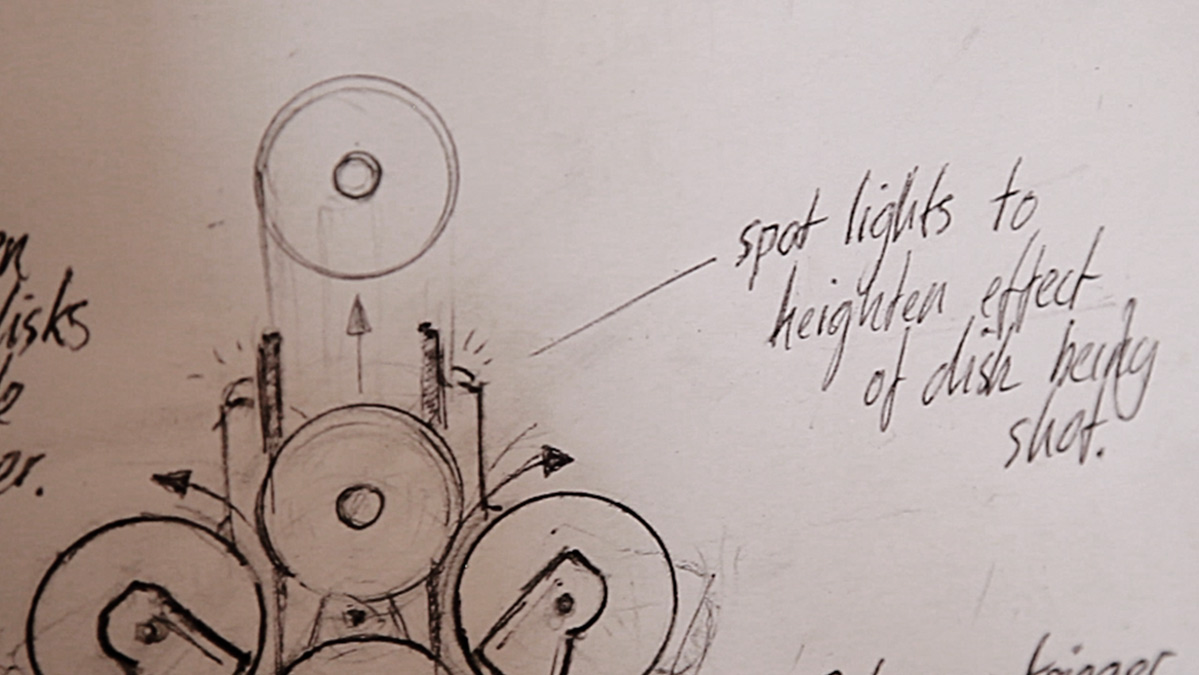 spot lights to
heighten effect
of disk being
shot.
trigger